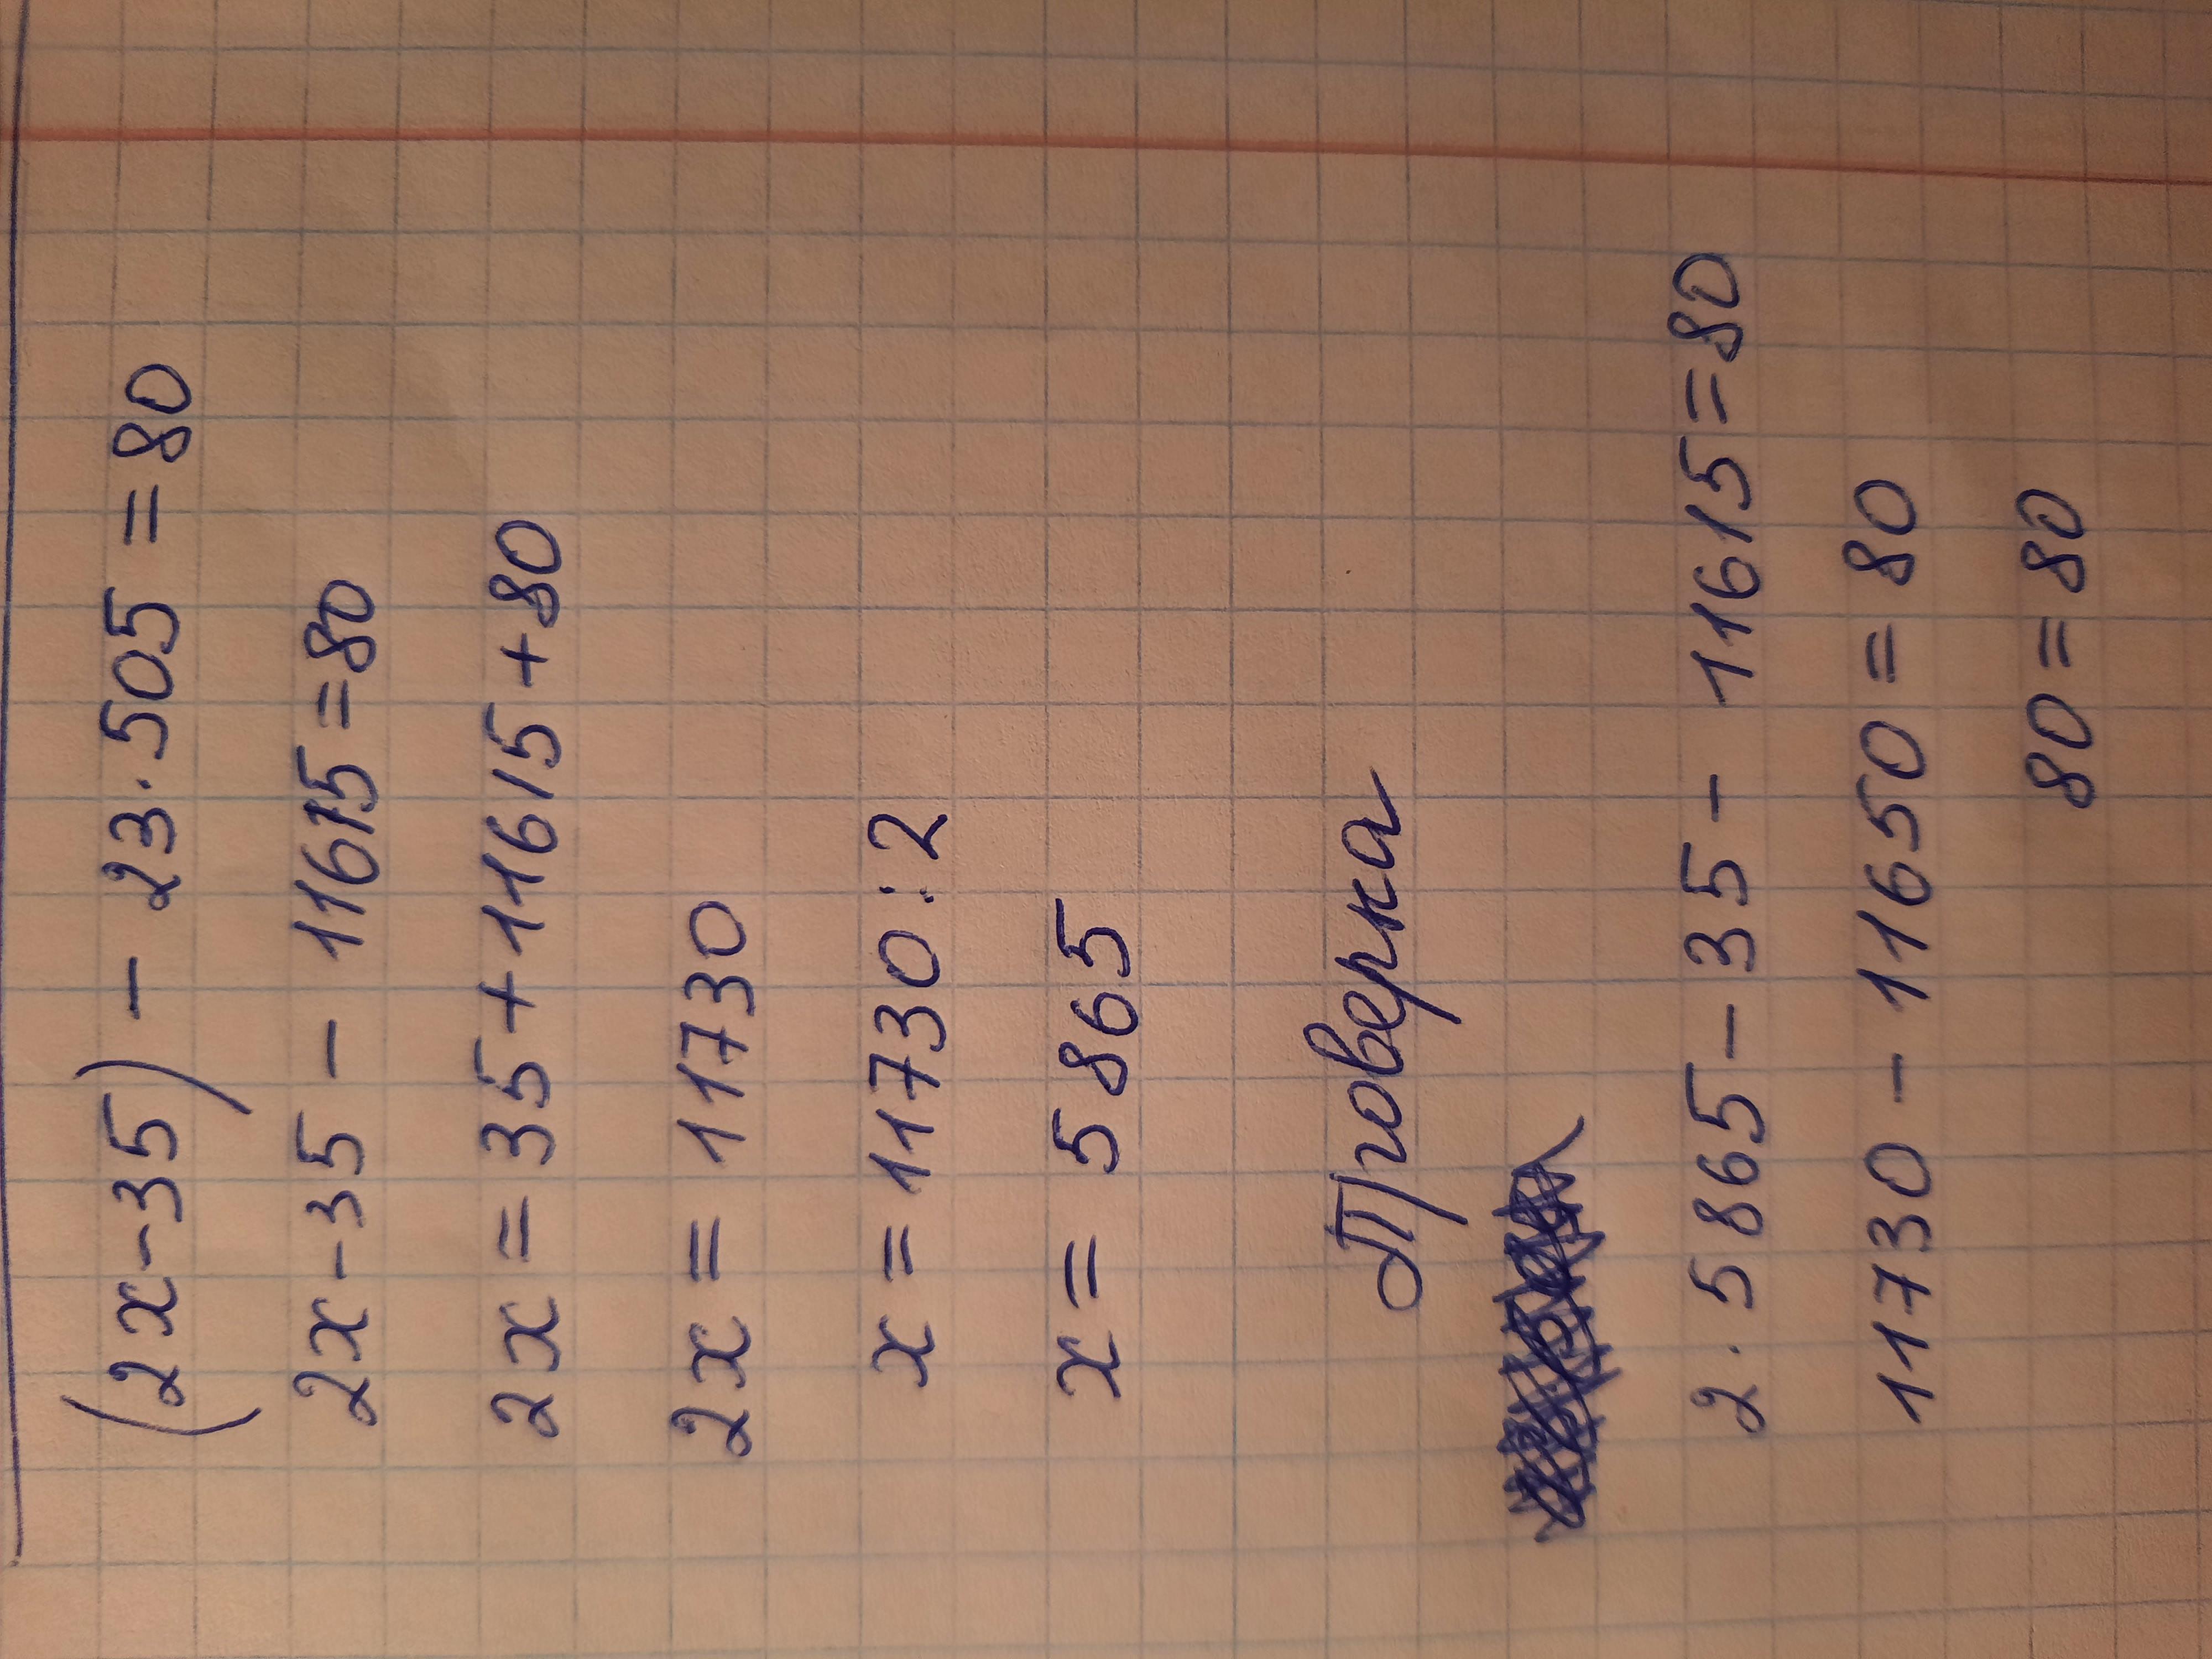 (2x-35) - 23·505 = 80
2x-35 - 11615=80
2x = 35+11615+80
2x = 11730
x = 11730:2
x = 5865
Проверка
2·5865-35- 11615=80
11730 - 11650 = 80
80 = 80